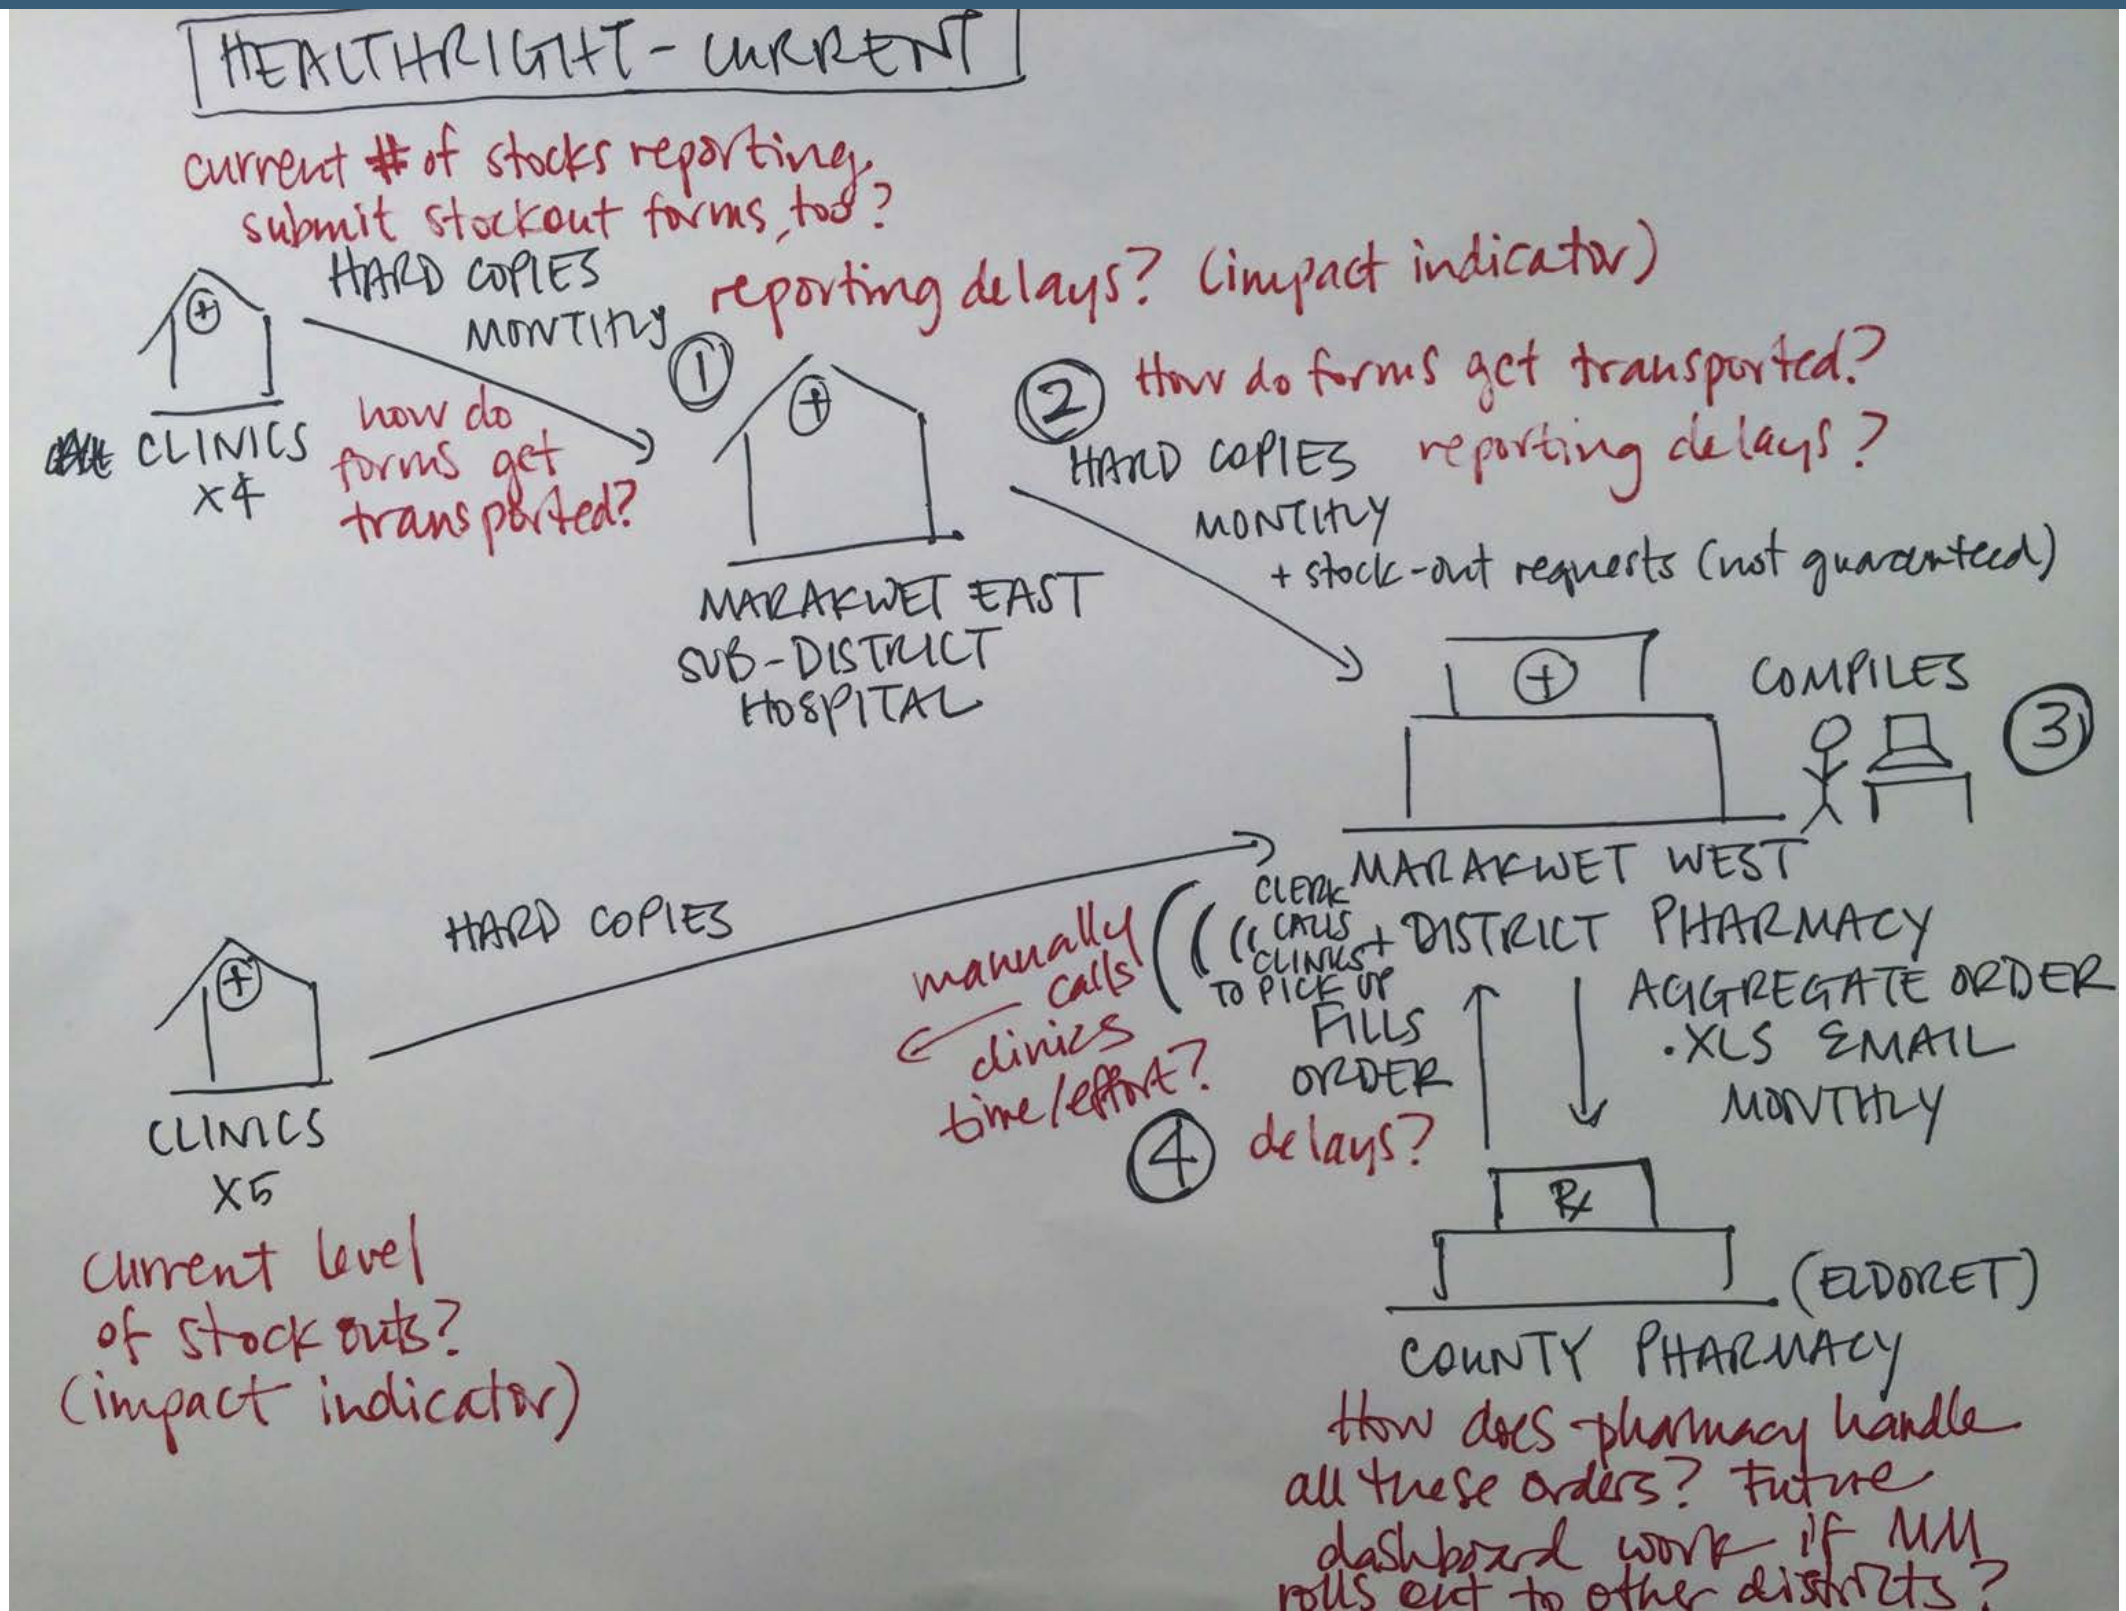 HEALTHRIGHT - CURRENT
current # of stocks reporting.
submit stockout forms, too?
HARD COPIES
MONTHLY
reporting delays? (impact indicator)
1
CLINICS
X4
how do
forms get
transported?
MARAKWET EAST
SUB-DISTRICT
HOSPITAL
2
How do forms get transported?
HARD COPIES
reporting delays?
MONTHLY
+ stock-out requests (not guaranteed)
COMPILES
3
MARAKWET WEST
+ DISTRICT PHARMACY
HARD COPIES
CLINICS
X5
current level
of stock outs?
(impact indicator)
manually
calls
clinics
time/effort?
CLERK
CALLS
CLINICS
TO PICK UP
FILLS
ORDER
4
delays?
AGGREGATE ORDER
.XLS EMAIL
MONTHLY
Rx
(ELDORET)
COUNTY PHARMACY
How does pharmacy handle
all these orders? Future
dashboard work if MM
rolls out to other districts?